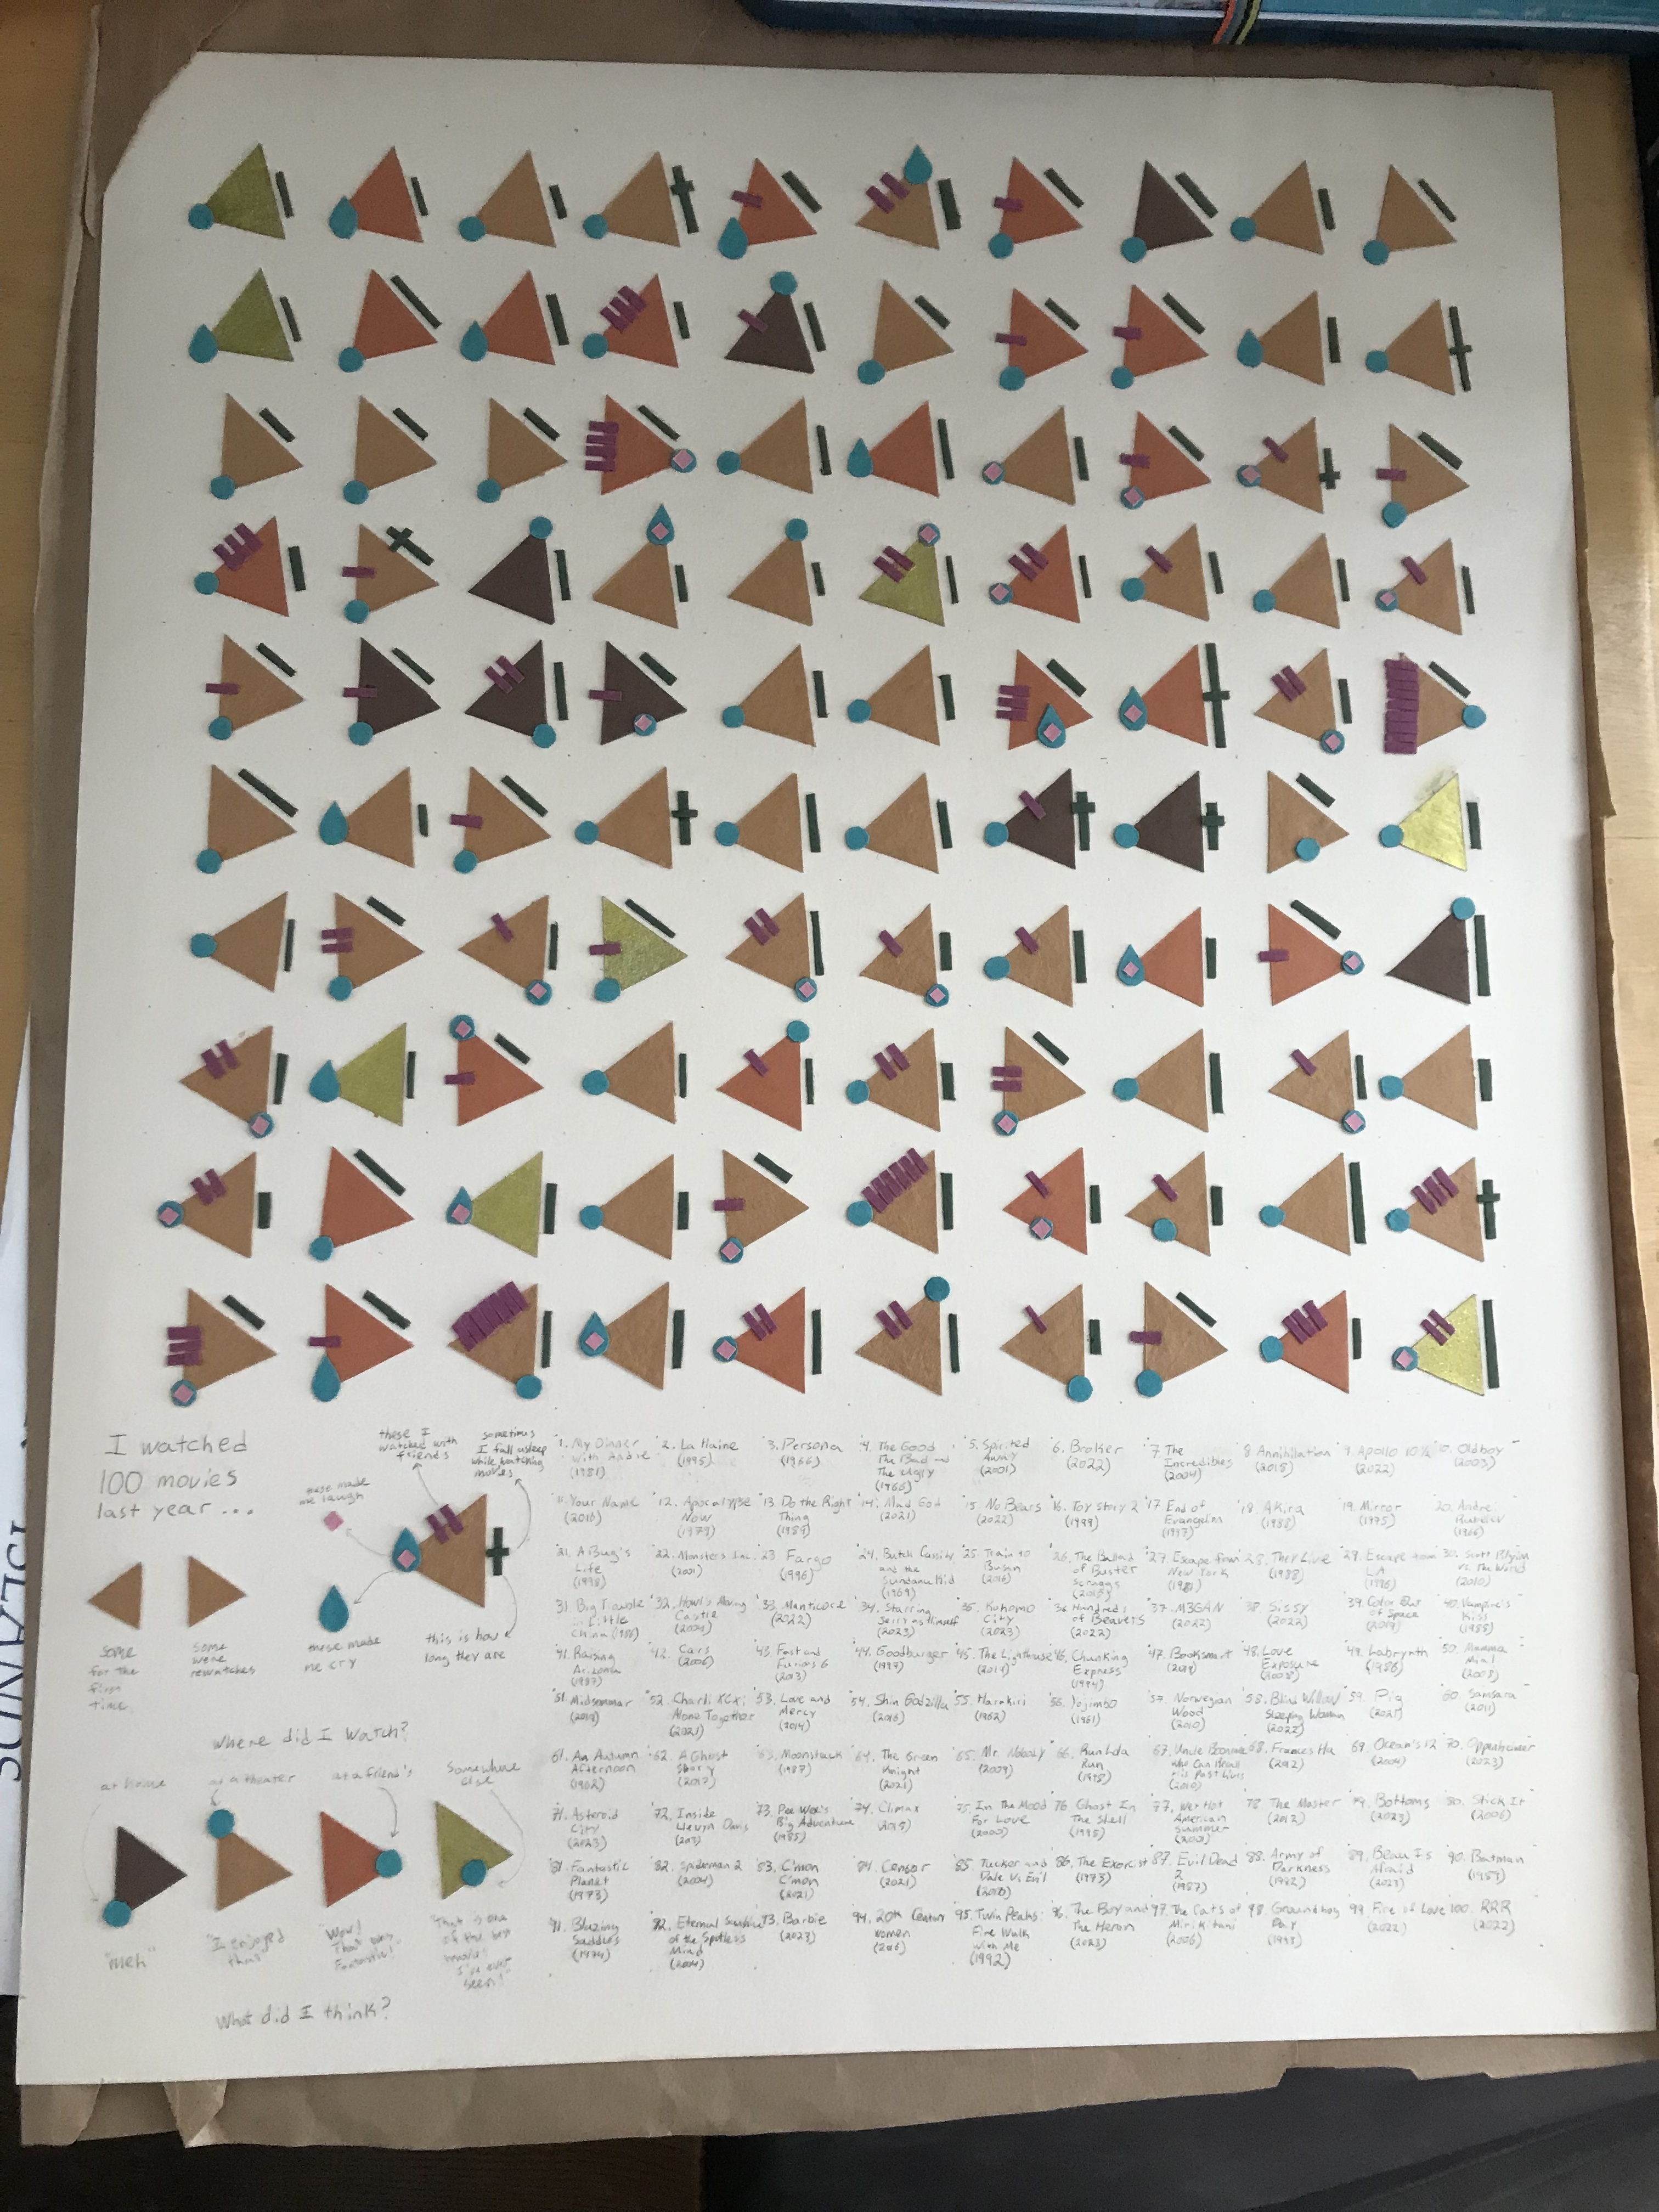 I watched
100 movies
last year...
these I
watched with
friends
sometimes
I fall asleep
while watching
movies
these made
me laugh
some
for the
first
time
some
were
rewatches
these made
me cry
this is how
long they are
where did I watch?
at home
at a theater
at a friend's
Somewhere
else
"meh"
"I enjoyed
that"
"Wow!
That was
Fantastic!"
"That is one
of the best
movies
I've ever
seen!"
What did I think?
1. My Dinner
with Andre
(1981)
2. La Haine
(1995)
3. Persona
(1966)
4. The Good
The Bad and
The Ugly
(1966)
5. Spirited
Away
(2001)
6. Broker
(2022)
7. The
Incredibles
(2004)
8. Annihilation
(2018)
9. Apollo 10 1/2
(2022)
10. Oldboy
(2003)
11. Your Name
(2016)
12. Apocalypse
Now
(1979)
13. Do the Right
Thing
(1989)
14. Mad God
(2021)
15. No Bears
(2022)
16. Toy Story 2
(1999)
17. End of
Evangelion
(1997)
18. Akira
(1988)
19. Mirror
(1975)
20. Andrei
Rublev
(1966)
21. A Bug's
Life
(1998)
22. Monsters Inc.
(2001)
23. Fargo
(1996)
24. Butch Cassidy
and the
Sundance Kid
(1969)
25. Train to
Busan
(2016)
26. The Ballad
of Buster
Scruggs
(2018)
27. Escape from
New York
(1981)
28. They Live
(1988)
29. Escape from
LA
(1996)
30. Scott Pilgrim
vs. The World
(2010)
31. Big Trouble
in Little
China (1986)
32. Howl's Moving
Castle
(2004)
33. Manticore
(2022)
34. Starring
Jerry as Himself
(2023)
35. Kokomo
City
(2023)
36. Hundreds
of Beavers
(2022)
37. M3GAN
(2022)
38. Sissy
(2022)
39. Color Out
of Space
(2019)
40. Vampire's
Kiss
(1988)
41. Raising
Arizona
(1987)
42. Cars
(2006)
43. Fast and
Furious 6
(2013)
44. Goodburger
(1997)
45. The Lighthouse
(2019)
46. Chunking
Express
(1994)
47. Booksmart
(2019)
48. Love
Exposure
(2008)
49. Labrynth
(1986)
50. Mamma
Mia!
(2008)
51. Midsommar
(2019)
52. Charli XCX:
Alone Together
(2021)
53. Love and
Mercy
(2014)
54. Shin Godzilla
(2016)
55. Harakiri
(1962)
56. Yojimbo
(1961)
57. Norwegian
Wood
(2010)
58. Blind Willow
Sleeping Woman
(2022)
59. Pig
(2021)
60. Samsara
(2011)
61. An Autumn
Afternoon
(1962)
62. A Ghost
Story
(2017)
63. Moonstruck
(1987)
64. The Green
Knight
(2021)
65. Mr. Nobody
(2009)
66. Run Lola
Run
(1998)
67. Uncle Boonmee
who Can Recall
His Past Lives
(2010)
68. Frances Ha
(2012)
69. Ocean's 12
(2004)
70. Oppenheimer
(2023)
71. Asteroid
City
(2023)
72. Inside
Llewyn Davis
73. Pee Wee's
Big Adventure
(1985)
74. Climax
75. In The Mood
For Love
(2000)
76. Ghost In
The Shell
(1995)
77. Wet Hot
American
Summer
(2001)
78. The Master
(2012)
79. Bottoms
(2023)
80. Stick It
(2006)
81. Fantastic
Planet
(1973)
82. Spiderman 2
(2004)
83. C'mon
C'mon
(2021)
84. Censor
(2021)
85. Tucker and
Dale Vs Evil
(2010)
86. The Exorcist
(1973)
87. Evil Dead
2
(1987)
88. Army of
Darkness
(1992)
89. Beau Is
Afraid
(2023)
90. Batman
(1989)
91. Blazing
Saddles
(1974)
92. Eternal Sunshine
of the Spotless
Mind
(2004)
93. Barbie
(2023)
94. 20th Century
Women
(2016)
95. Twin Peaks:
Fire Walk
With Me
(1992)
96. The Boy and
The Heron
(2023)
97. The Cats of
Mirikitani
(2006)
98. Groundhog
Day
(1993)
99. Fire of Love
(2022)
100. RRR
(2022)